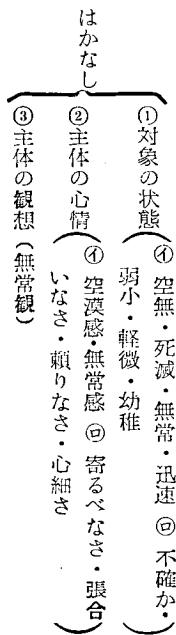 はかなし
①対象の状態（㋑ 空無・死滅・無常・迅速 ㋺ 不確か・
弱小・軽微・幼稚）
②主体の心情（㋑ 空漠感・無常感 ㋺ 寄るべなさ・張合
いなさ・頼りなさ・心細さ）
③主体の観想（無常観）